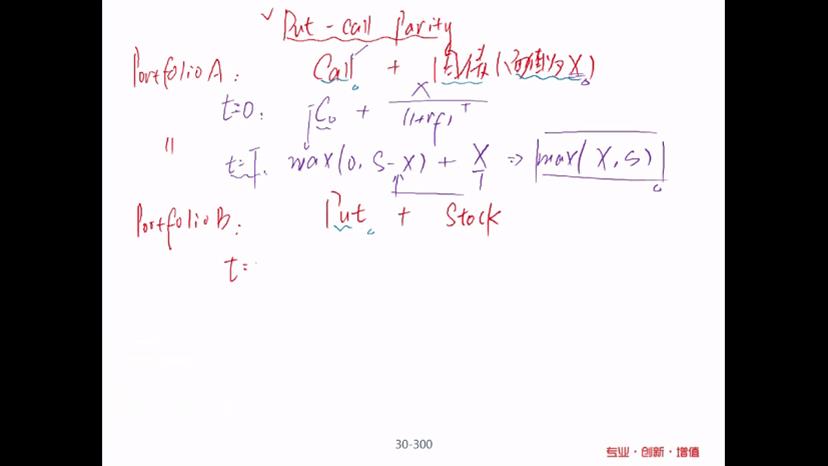 ✓ Put-call Parity
Portfolio A: Call + 国债(面值为X)
t=0: C₀ + X/(1+rf)^T
"
t=T. max(0, S-X) + X/1 ⇒ max(X, S)
Portfolio B: Put + Stock
t=
30-300
专业·创新·增值